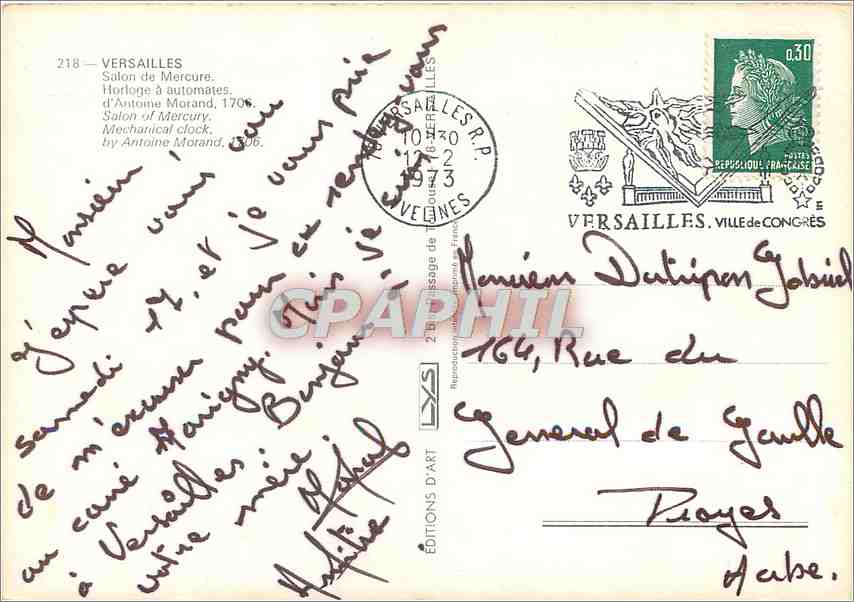 218 — VERSAILLES
Salon de Mercure.
Horloge à automates.
d'Antoine Morand, 1706.
Salon of Mercury.
Mechanical clock.
by Antoine Morand, 1706.
Monsieur,
J'espère vous voir
samedi 17, et je vous prie
de m'excuser pour ce rendez-vous
au carré Marigny. Mais je suis
à Versailles. Bonjour à
votre mère.
78 VERSAILLES R.P.
10H30
12-2
1973
YVELINES
VERSAILLES. VILLE de CONGRÈS
0,30
POSTES
REPUBLIQUE FRANÇAISE
ÉDITIONS D'ART
LYS
2 bis Passage de Toulouse 78-VERSAILLES
Reproduction interdite Imprimé en France
CPAPHIL
Monsieur Dutripon Gabriel
164, Rue du
General de Gaulle
Troyes
Aube.